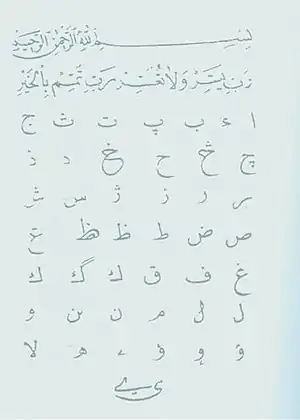 بسم الله الرحمن الرحيم
رب يسر ولا تعسر رب تمم بالخير
ا ء ب پ ت ث ج
چ څ ح خ د ذ
ر ز ژ س ش
ص ض ط ظ ع
غ ف ق ك گ ك
ل م ن و
و ۇ ء ه لا
ي ے